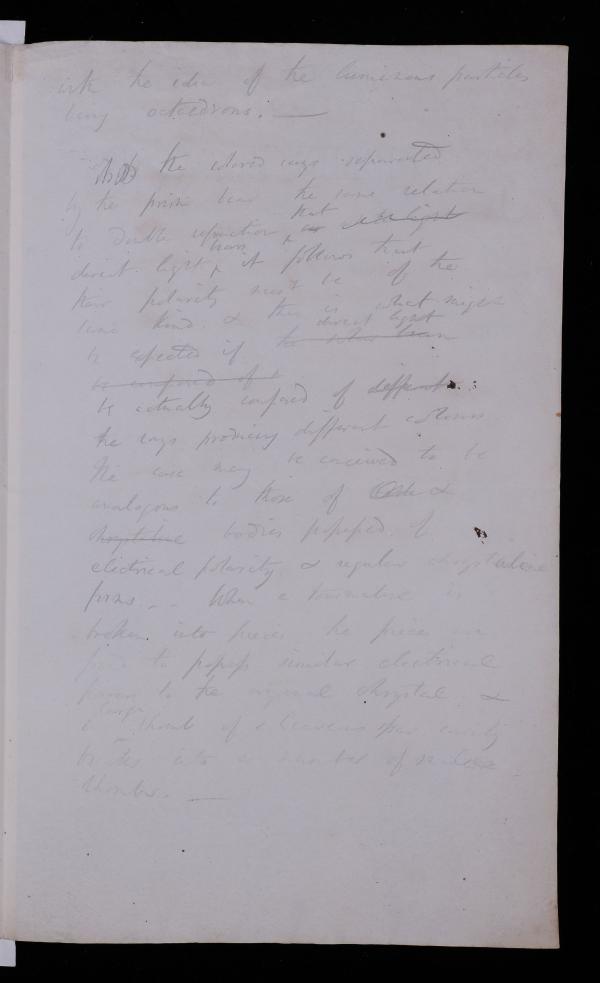 with the idea of the luminous particles
being octaedrons. —
As the colored rays separated
by the prism bear the same relation
to double refraction that as white light
direct light bears, it follows that
their polarity must be of the
same kind & this is what might
be expected if the direct light
be composed of
be actually composed of different
the rays producing different colours
The case may be conceived to be
analogous to those of &
chrystaline bodies possessed of
electrical polarity & regular chrystaline
forms. - When a tourmaline is
broken into pieces the pieces are
found to possess similar electrical
powers to the original chrystal &
a large rhomb of Iceland spar easily
into a number of similar
rhombs. —